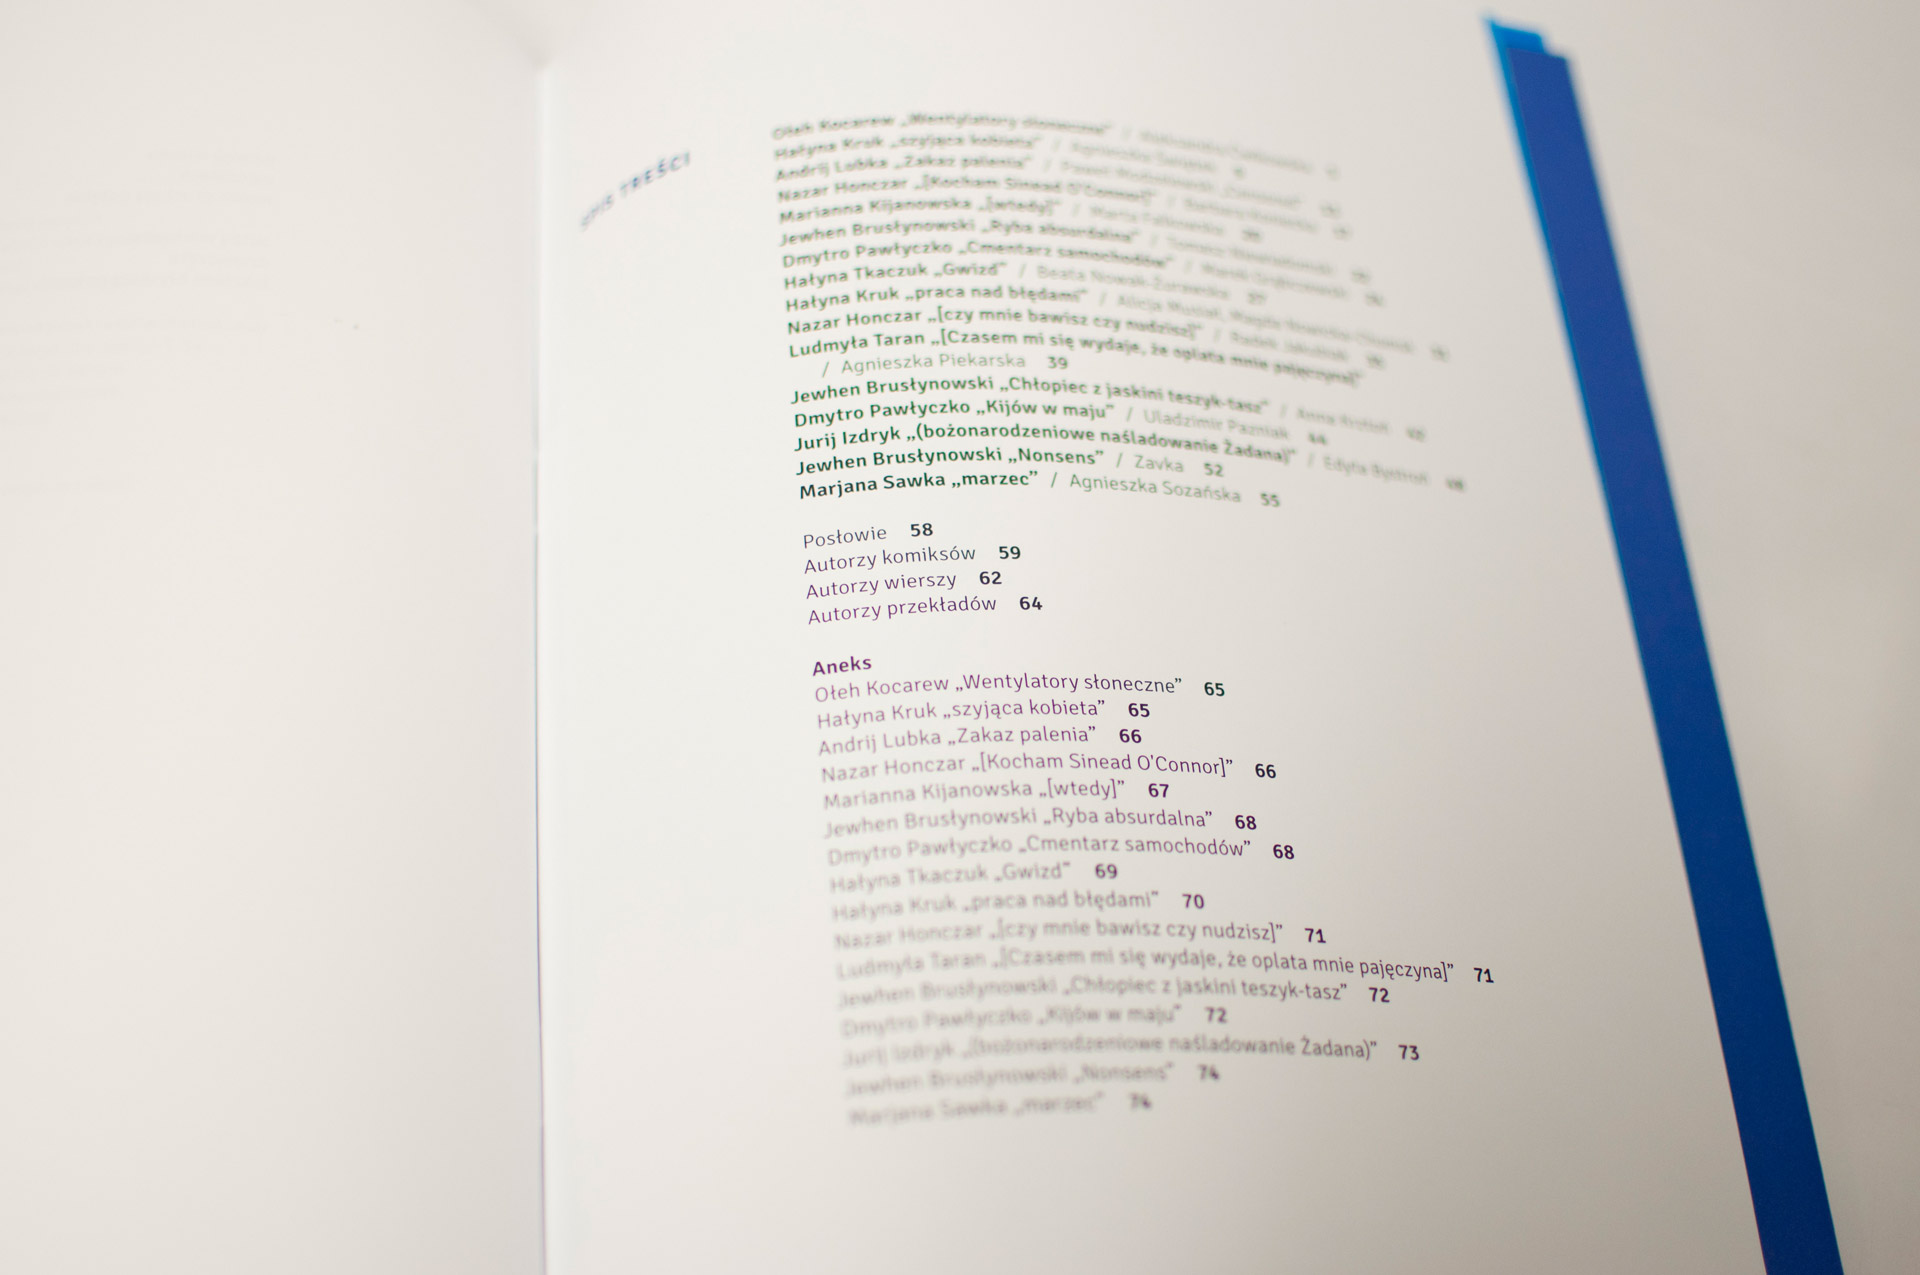 SPIS TREŚCI
Ołeh Kocarew „Wentylatory słoneczne” /
Hałyna Kruk „szyjąca kobieta” /
Andrij Lubka „Zakaz palenia” /
Nazar Honczar „[Kocham Sinead O'Connor]” /
Marianna Kijanowska „[wtedy]” /
Jewhen Brusłynowski „Ryba absurdalna” /
Dmytro Pawłyczko „Cmentarz samochodów” /
Hałyna Tkaczuk „Gwizd” / Beata
Hałyna Kruk „praca nad błędami” / Alicja
Nazar Honczar „[czy mnie bawisz czy nudzisz]” /
Ludmyła Taran „[Czasem mi się wydaje, że oplata mnie pajęczyna]”
/ Agnieszka Piekarska 39
Jewhen Brusłynowski „Chłopiec z jaskini teszyk-tasz” / Anna
Dmytro Pawłyczko „Kijów w maju” / Uladzimir Pazniak 44
Jurij Izdryk „(bożonarodzeniowe naśladowanie Żadana)” / Edyta
Jewhen Brusłynowski „Nonsens” / Zavka 52
Marjana Sawka „marzec” / Agnieszka Sozańska 55
Posłowie 58
Autorzy komiksów 59
Autorzy wierszy 62
Autorzy przekładów 64
Aneks
Ołeh Kocarew „Wentylatory słoneczne” 65
Hałyna Kruk „szyjąca kobieta” 65
Andrij Lubka „Zakaz palenia” 66
Nazar Honczar „[Kocham Sinead O'Connor]” 66
Marianna Kijanowska „[wtedy]” 67
Jewhen Brusłynowski „Ryba absurdalna” 68
Dmytro Pawłyczko „Cmentarz samochodów” 68
Hałyna Tkaczuk „Gwizd” 69
Hałyna Kruk „praca nad błędami” 70
Nazar Honczar „[czy mnie bawisz czy nudzisz]” 71
Ludmyła Taran „[Czasem mi się wydaje, że oplata mnie pajęczyna]” 71
Jewhen Brusłynowski „Chłopiec z jaskini teszyk-tasz” 72
Dmytro Pawłyczko „Kijów w maju” 72
Jurij Izdryk „(bożonarodzeniowe naśladowanie Żadana)” 73
Jewhen Brusłynowski „Nonsens” 74
Marjana Sawka „marzec” 74